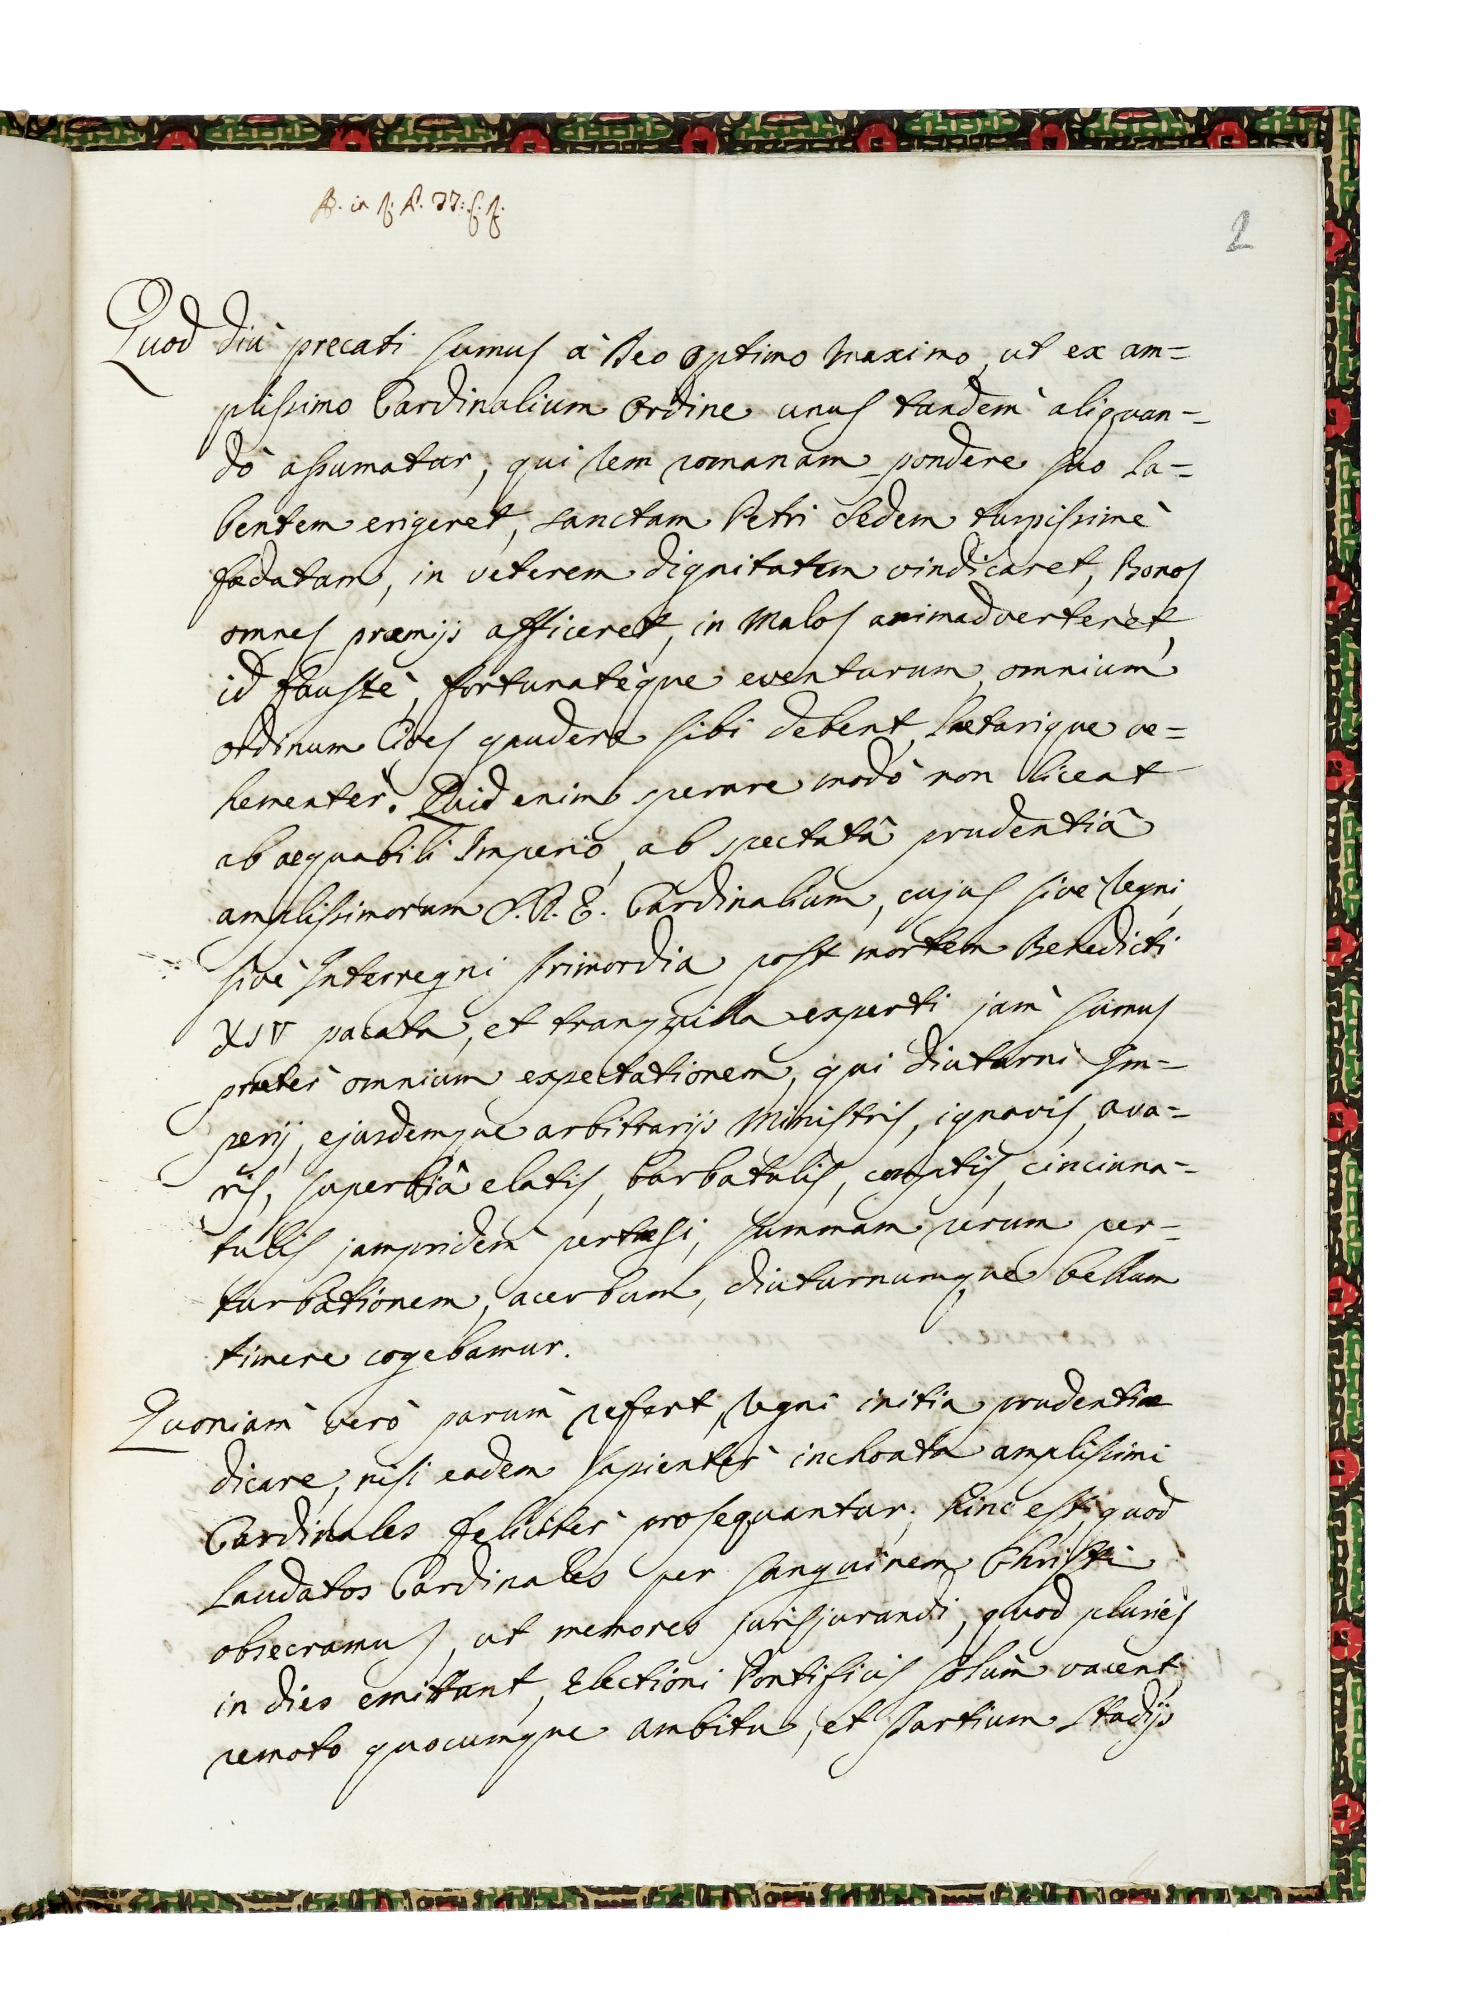 2
Quod diù precati sumus à Deo Optimo Maximo, ut ex am=
plissimo Cardinalium Ordine unus tandem aliquan=
dò assumatur, qui Rem romanam pondere suo la=
bentem erigeret, sanctam Petri Sedem turpissimè
fædatam, in veterem dignitatem vindicaret, Bonos
omnes præmijs afficeret, in Malos animadverteret,
id faustè, fortunatèque eventurum, omnium
ordinum Cives gaudere sibi debent, lætarique ve=
hementer. Quid enim sperare modò non liceat
ab æquabili Imperio, ab spectatâ prudentiâ
amplissimorum S. R. E. Cardinalium, cujus sivè Regni,
sivè Interregni primordia post mortem Benedicti
XIV pacata, et tranquilla experti jam sumus
præter omnium expectationem, qui diuturni Im=
perij, ejusdemque arbitrarijs Ministris, ignavis, ava=
ris, superbiâ elatis, barbatulis, comptis, cincinna=
tulis jampridem pertæsi, summam rerum per=
turbationem, acerbum, diuturnumque bellum
timere cogebamur.
Quoniam verò parum refert, Regni initia prudentiæ
dicare, nisi eadem sapienter inchoata amplissimi
Cardinales feliciter prosequantur; hinc est, quod
laudatos Cardinales per sanguinem Christi
obsecramus, ut memores jurisjurandi, quod pluries
in dies emittunt, Electioni Pontificis solùm vacent,
remoto quocumque ambitu, et Partium Stadijs